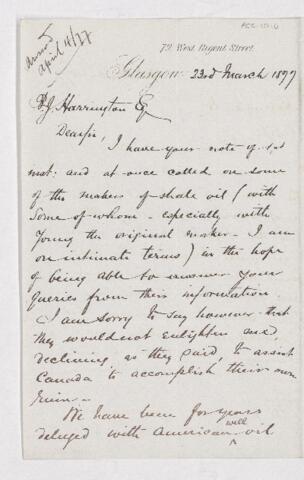 Answd
April 14/77
79. West Regent Street.
Glasgow 23rd March 1877
B J. Harrington Esq
Dear Sir,
I have your note of 1st
inst: and at once called on some
of the makers of shale oil (with
some of whom - especially with
Young the original maker - I am
on intimate terms) in the hope
of being able to answer your
queries from their information
I am sorry to say however that
they would not enlighten me,
declining, as they said, to assist
Canada to accomplish their own
ruin -
We have been for years
deluged with American well oil